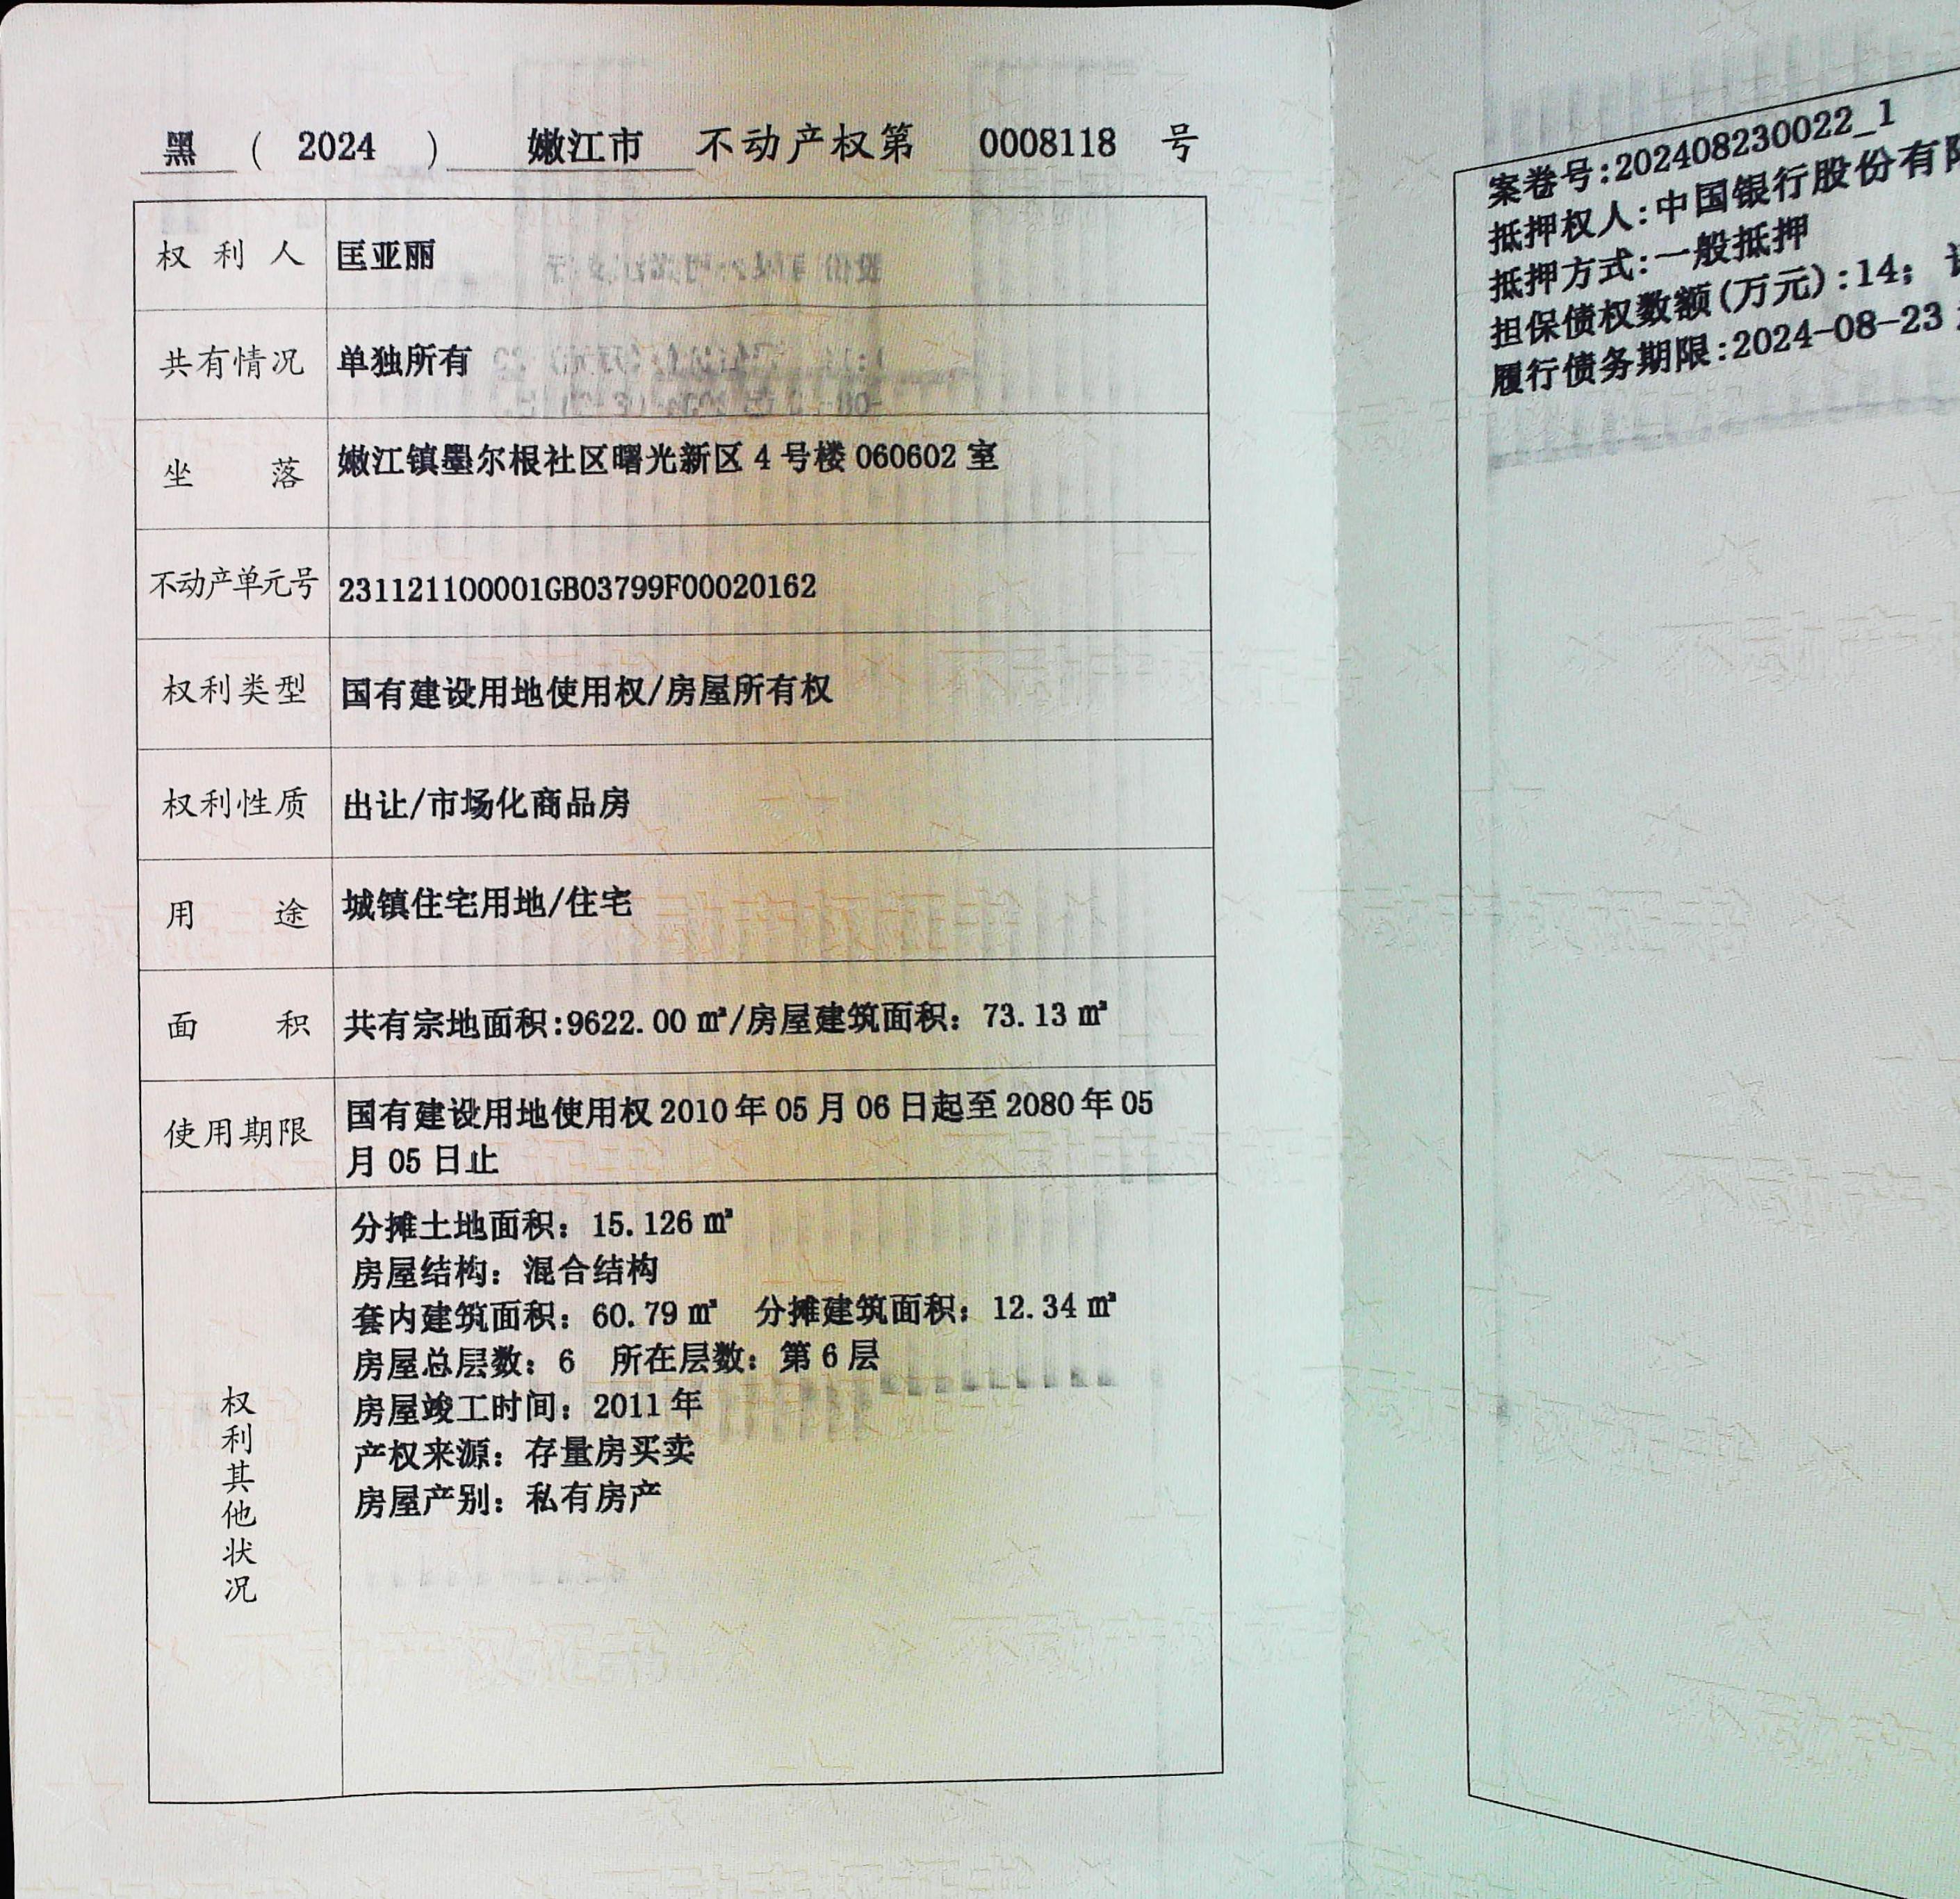 黑 ( 2024 ) 嫩江市 不动产权第 0008118 号
权利人 匡亚丽
共有情况 单独所有
坐落 嫩江镇墨尔根社区曙光新区 4 号楼 060602 室
不动产单元号 231121100001GB03799F00020162
权利类型 国有建设用地使用权/房屋所有权
权利性质 出让/市场化商品房
用途 城镇住宅用地/住宅
面积 共有宗地面积:9622.00 ㎡/房屋建筑面积：73.13 ㎡
使用期限 国有建设用地使用权 2010 年 05 月 06 日起至 2080 年 05
月 05 日止
权利其他状况
分摊土地面积：15.126 ㎡
房屋结构：混合结构
套内建筑面积：60.79 ㎡ 分摊建筑面积：12.34 ㎡
房屋总层数：6 所在层数：第 6 层
房屋竣工时间：2011 年
产权来源：存量房买卖
房屋产别：私有房产
案卷号:202408230022_1
抵押权人:中国银行股份有限
抵押方式:一般抵押
担保债权数额(万元):14；
履行债务期限:2024-08-23